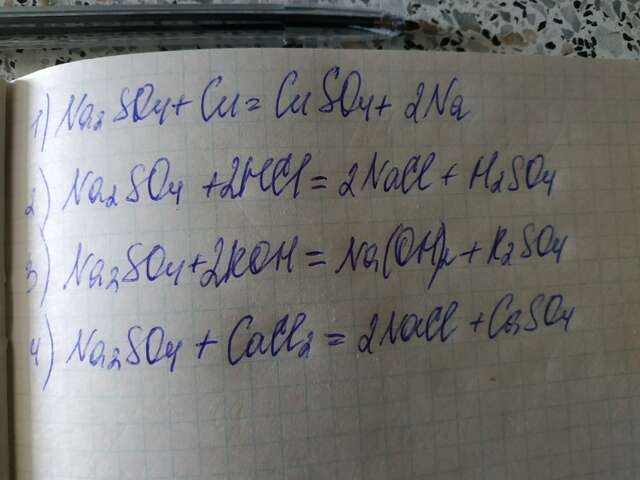 1) Na₂SO₄ + Cu = CuSO₄ + 2Na
2) Na₂SO₄ + 2HCl = 2NaCl + H₂SO₄
3) Na₂SO₄ + 2KOH = Na(OH)₂ + K₂SO₄
4) Na₂SO₄ + CaCl₂ = 2NaCl + CaSO₄